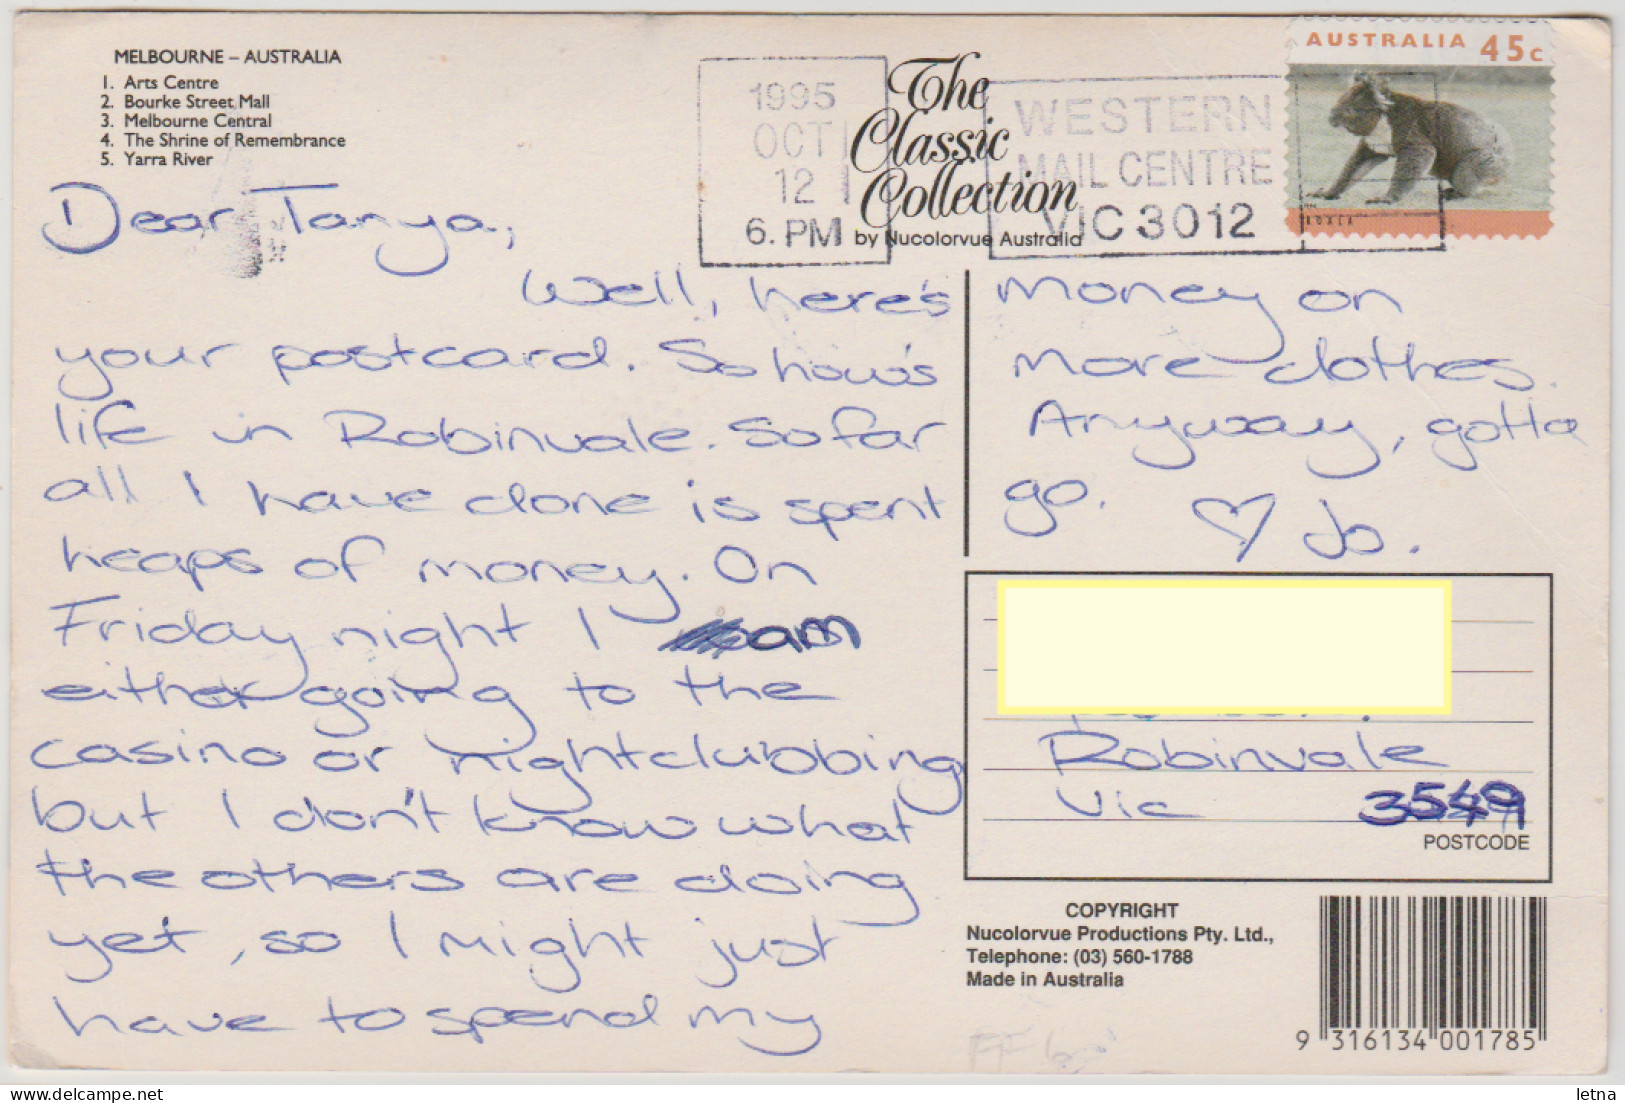 MELBOURNE – AUSTRALIA
1. Arts Centre
2. Bourke Street Mall
3. Melbourne Central
4. The Shrine of Remembrance
5. Yarra River
1995
OCT
12
6. PM
The
Classic
Collection
by Nucolorvue Australia
WESTERN
MAIL CENTRE
VIC 3012
AUSTRALIA 45c
KOALA
Dear Tanya,
Well, here's
your postcard. So how's
life in Robinvale. So far
all I have done is spent
heaps of money. On
Friday night I am
either going to the
casino or nightclubbing
but I don't know what
the others are doing
yet, so I might just
have to spend my
money on
more clothes.
Anyway, gotta
go. ♡ Jo.
Robinvale
Vic 3549
POSTCODE
COPYRIGHT
Nucolorvue Productions Pty. Ltd.,
Telephone: (03) 560-1788
Made in Australia
9 316134 001785
delcampe.net
letna